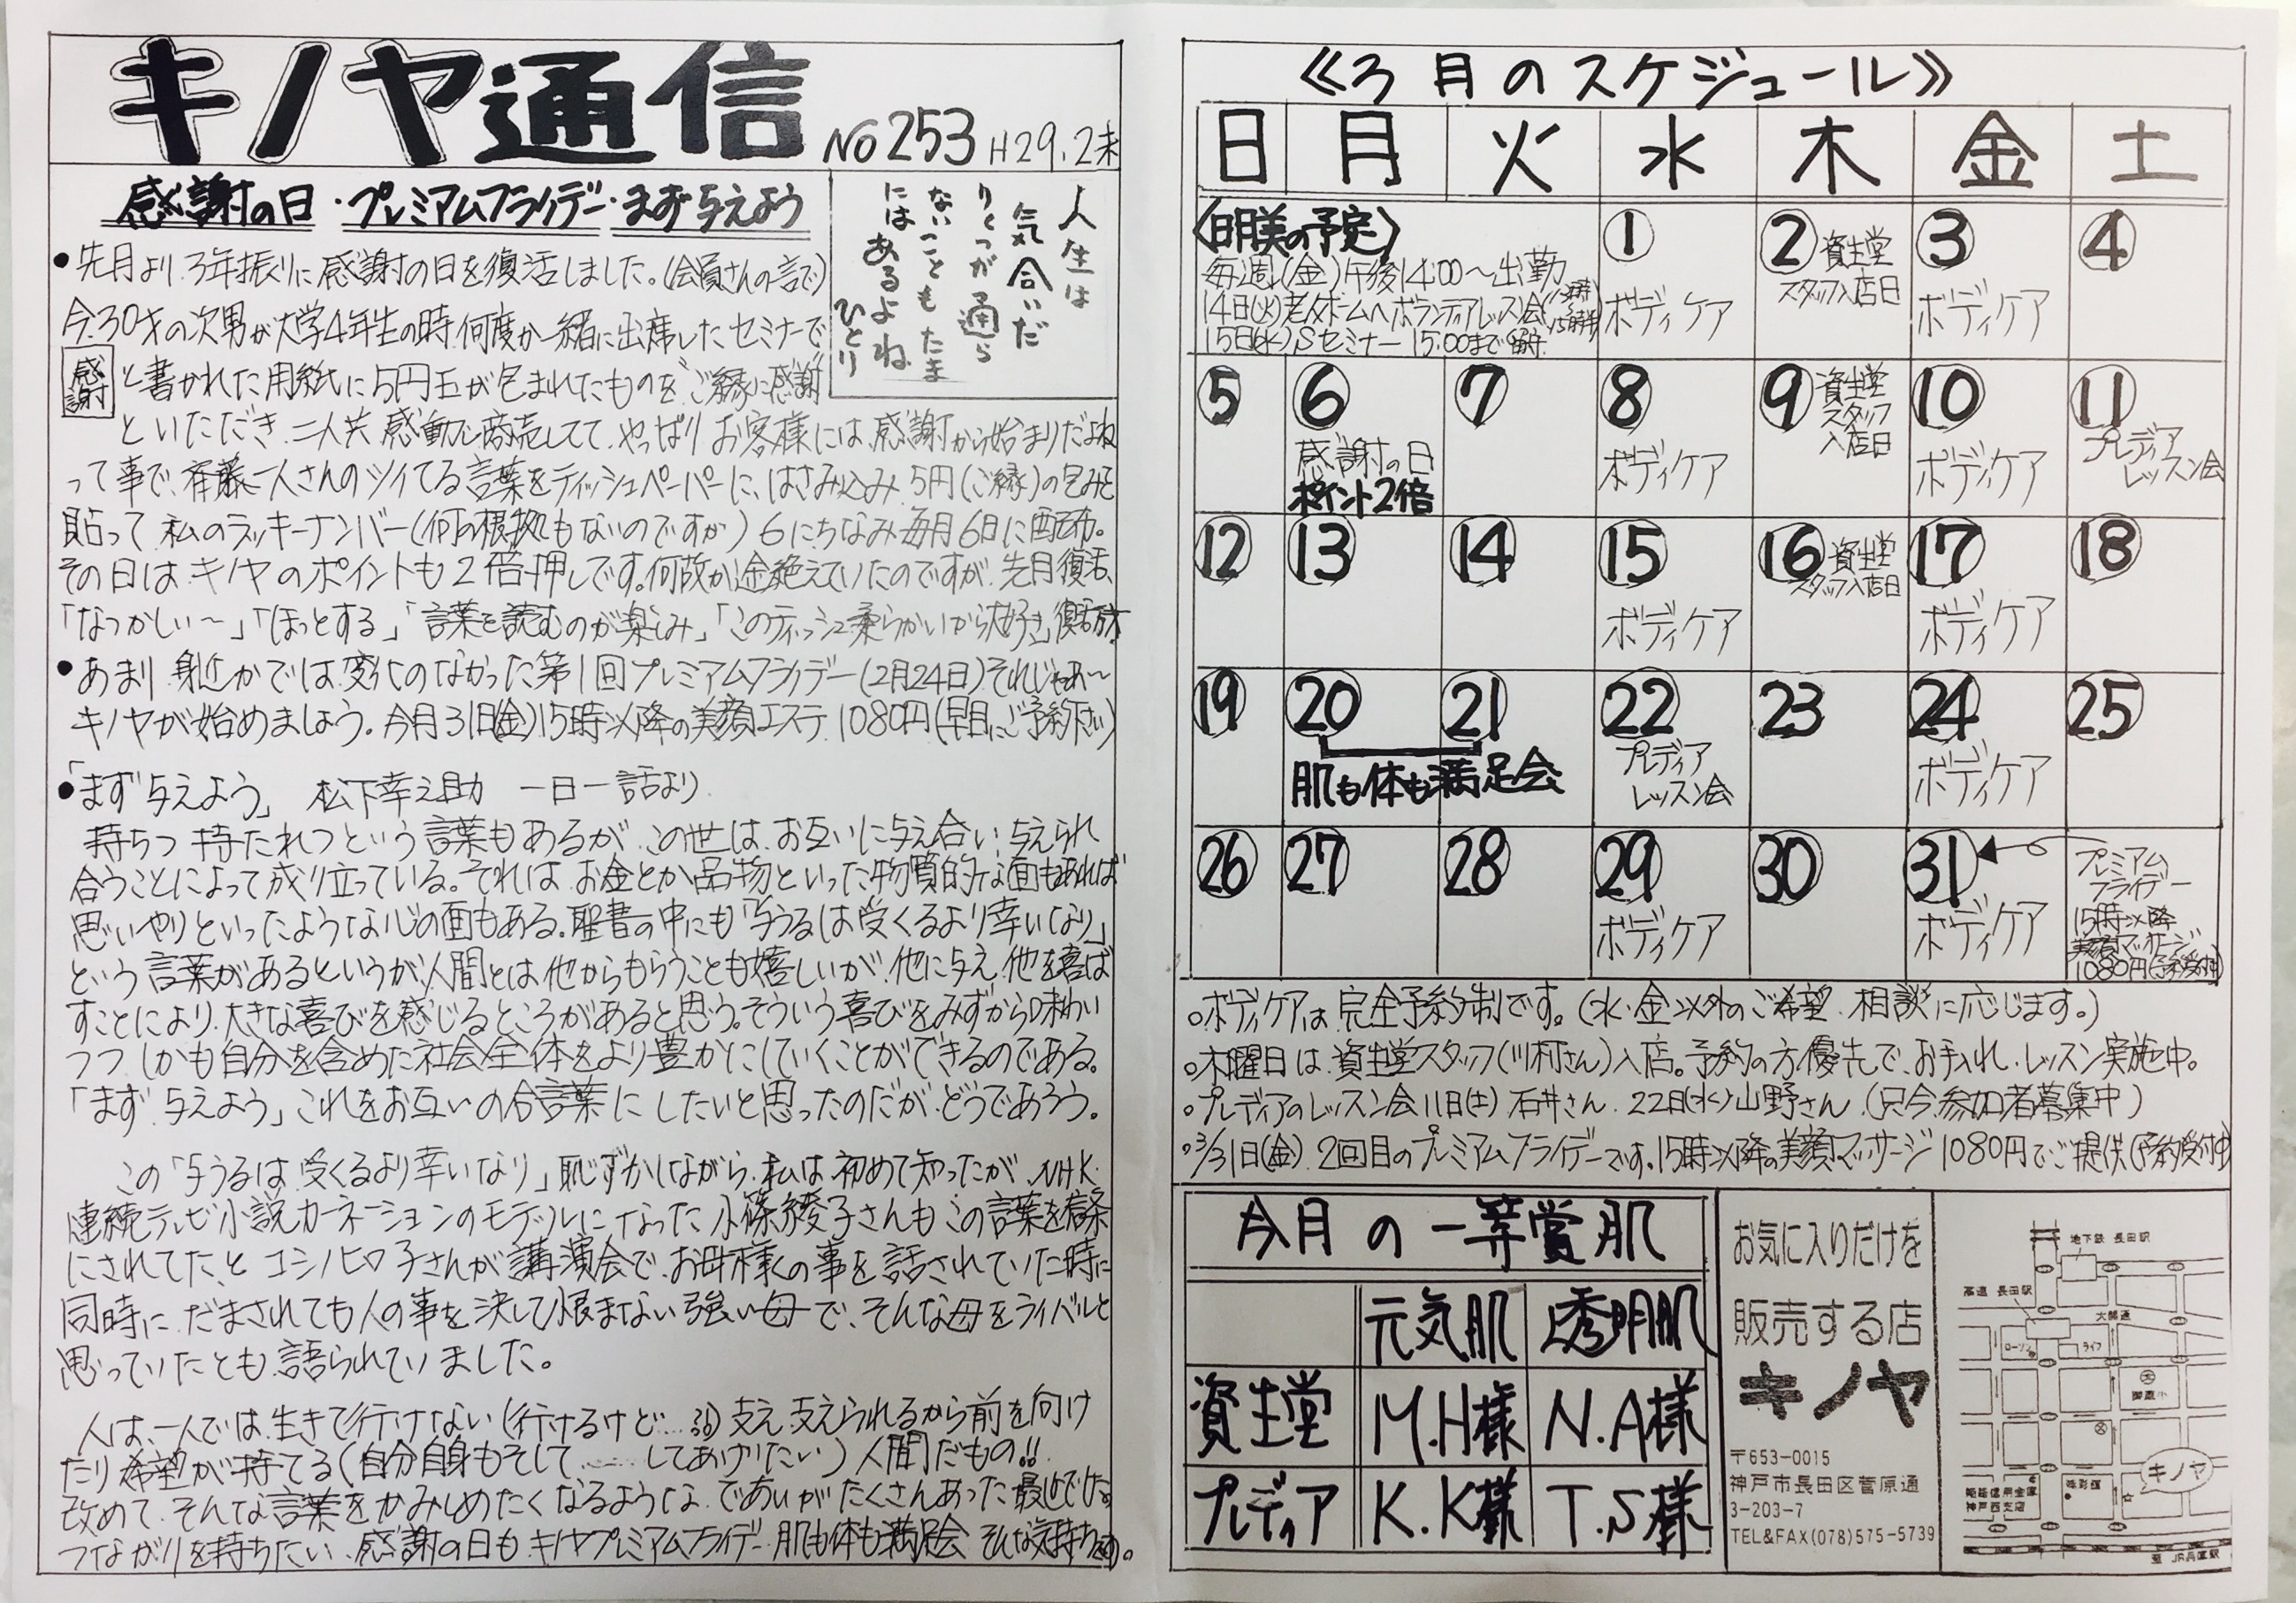 キノヤ通信 NO253 H29.2末
感謝の日・プレミアムフライデー・まず与えよう
人生は
気合いだ
りくつが通ら
ないこともたま
にはあるよね
ひとり
●先月より、3年振りに感謝の日を復活しました。(会員さんの言で)
今、30才の次男が大学4年生の時、何度か一緒に出席したセミナーで
感謝 と書かれた用紙に5円玉が包まれたものを、ご縁に感謝
といただき、二人共感動し商売してて、やっぱりお客様には、感謝から始まりだよね
って事で、斉藤一人さんのツイてる言葉をティッシュペーパーに、はさみ込み、5円(ご縁)の包みを
貼って 私のラッキーナンバー(何の根拠もないのですが)6にちなみ毎月6日に配布。
その日は キノヤのポイントも2倍押しです。何故か途絶えていたのですが、先月復活、
「なつかしい〜」「ほっとする」「言葉を読むのが楽しみ」「このティッシュ柔らかいから大好き」
●あまり 身近かでは変化のなかった第1回プレミアムフライデー(2月24日)それじゃあ〜
キノヤが始めましょう。今月31日(金)15時以降の美顔エステ 1080円(早目にご予約下さい)
●「まず与えよう」 松下幸之助 一日一話より
持ちつ 持たれつという言葉もあるが、この世は、お互いに与え合い、与えられ
合うことによって成り立っている。それは お金とか品物といった物質的な面もあれば
思いやりといったような心の面もある。聖書の中にも「与うるは受くるより幸いなり」
という言葉があるというが、人間とは他からもらうことも嬉しいが、他に与え、他を喜ば
すことにより、大きな喜びを感じるところがあると思う。そういう喜びをみずから味わい
つつ しかも自分を含めた社会全体をより豊かにしていくことができるのである。
「まず与えよう」これをお互いの合言葉にしたいと思ったのだが、どうであろう。
この「与うるは、受くるより幸いなり」恥ずかしながら、私は初めて知ったが、NHK
連続テレビ小説カーネーションのモデルになった小篠綾子さんもこの言葉を信条
にされてた、と コシノヒロ子さんが講演会で、お母様の事を話されていた時に
同時に、だまされても人の事を決して恨まない強い母で、そんな母をライバルと
思っていたとも、語られていました。
人は、一人では、生きて行けない(行けるけど…) 支え、支えられるから前を向け
たり 希望が持てる(自分自身もそして……してあげたい)人間だもの!!
改めて、そんな言葉をかみしめたくなるような、であいがたくさんあった最近でした。
つながりを持ちたい、感謝の日もキノヤプレミアムフライデー、肌も体も満足会 そんな気持ち
《3月のスケジュール》
日 月 火 水 木 金 土
〈明美の予定〉
毎週(金)午後14:00〜出勤
14日(火)老人ホームへボランティアレッスン会
15日(水)Sセミナー 15:00まで留守
① ボディケア
② 資生堂スタッフ入店日
③ ボディケア
④
⑤
⑥ 感謝の日 ポイント2倍
⑦
⑧ ボディケア
⑨ 資生堂スタッフ入店日
⑩ ボディケア
⑪ プレディアレッスン会
⑫
⑬
⑭
⑮ ボディケア
⑯ 資生堂スタッフ入店日
⑰ ボディケア
⑱
⑲
⑳ ㉑ 肌も体も満足会
㉒ プレディアレッスン会
23
㉔ ボディケア
㉕
㉖
㉗
㉘
㉙ ボディケア
㉚
㉛ ボディケア
プレミアム
フライデー
15時以降
美顔マッサージ
1080円(予約受付中)
○ボディケアは完全予約制です。(水・金以外のご希望、相談に応じます。)
○木曜日は、資生堂スタッフ(川村さん)入店。予約の方優先で、お手入れ・レッスン実施中。
○プレディアのレッスン会11日(土)石井さん、22日(水)山野さん(只今、参加者募集中)
○3/31日(金) 2回目のプレミアムフライデーです。15時以降の美顔マッサージ1080円でご提供(予約受付中)
今月の一等賞肌
元気肌 透明肌
資生堂 M.H様 N.A様
プレディア K.K様 T.S様
お気に入りだけを
販売する店
キノヤ
〒653-0015
神戸市長田区菅原通
3-203-7
TEL&FAX(078)575-5739
地下鉄 長田駅
高速 長田駅
大開通
ローソン
ライフ
御蔵小
キノヤ
神戸西支店
至 JR兵庫駅